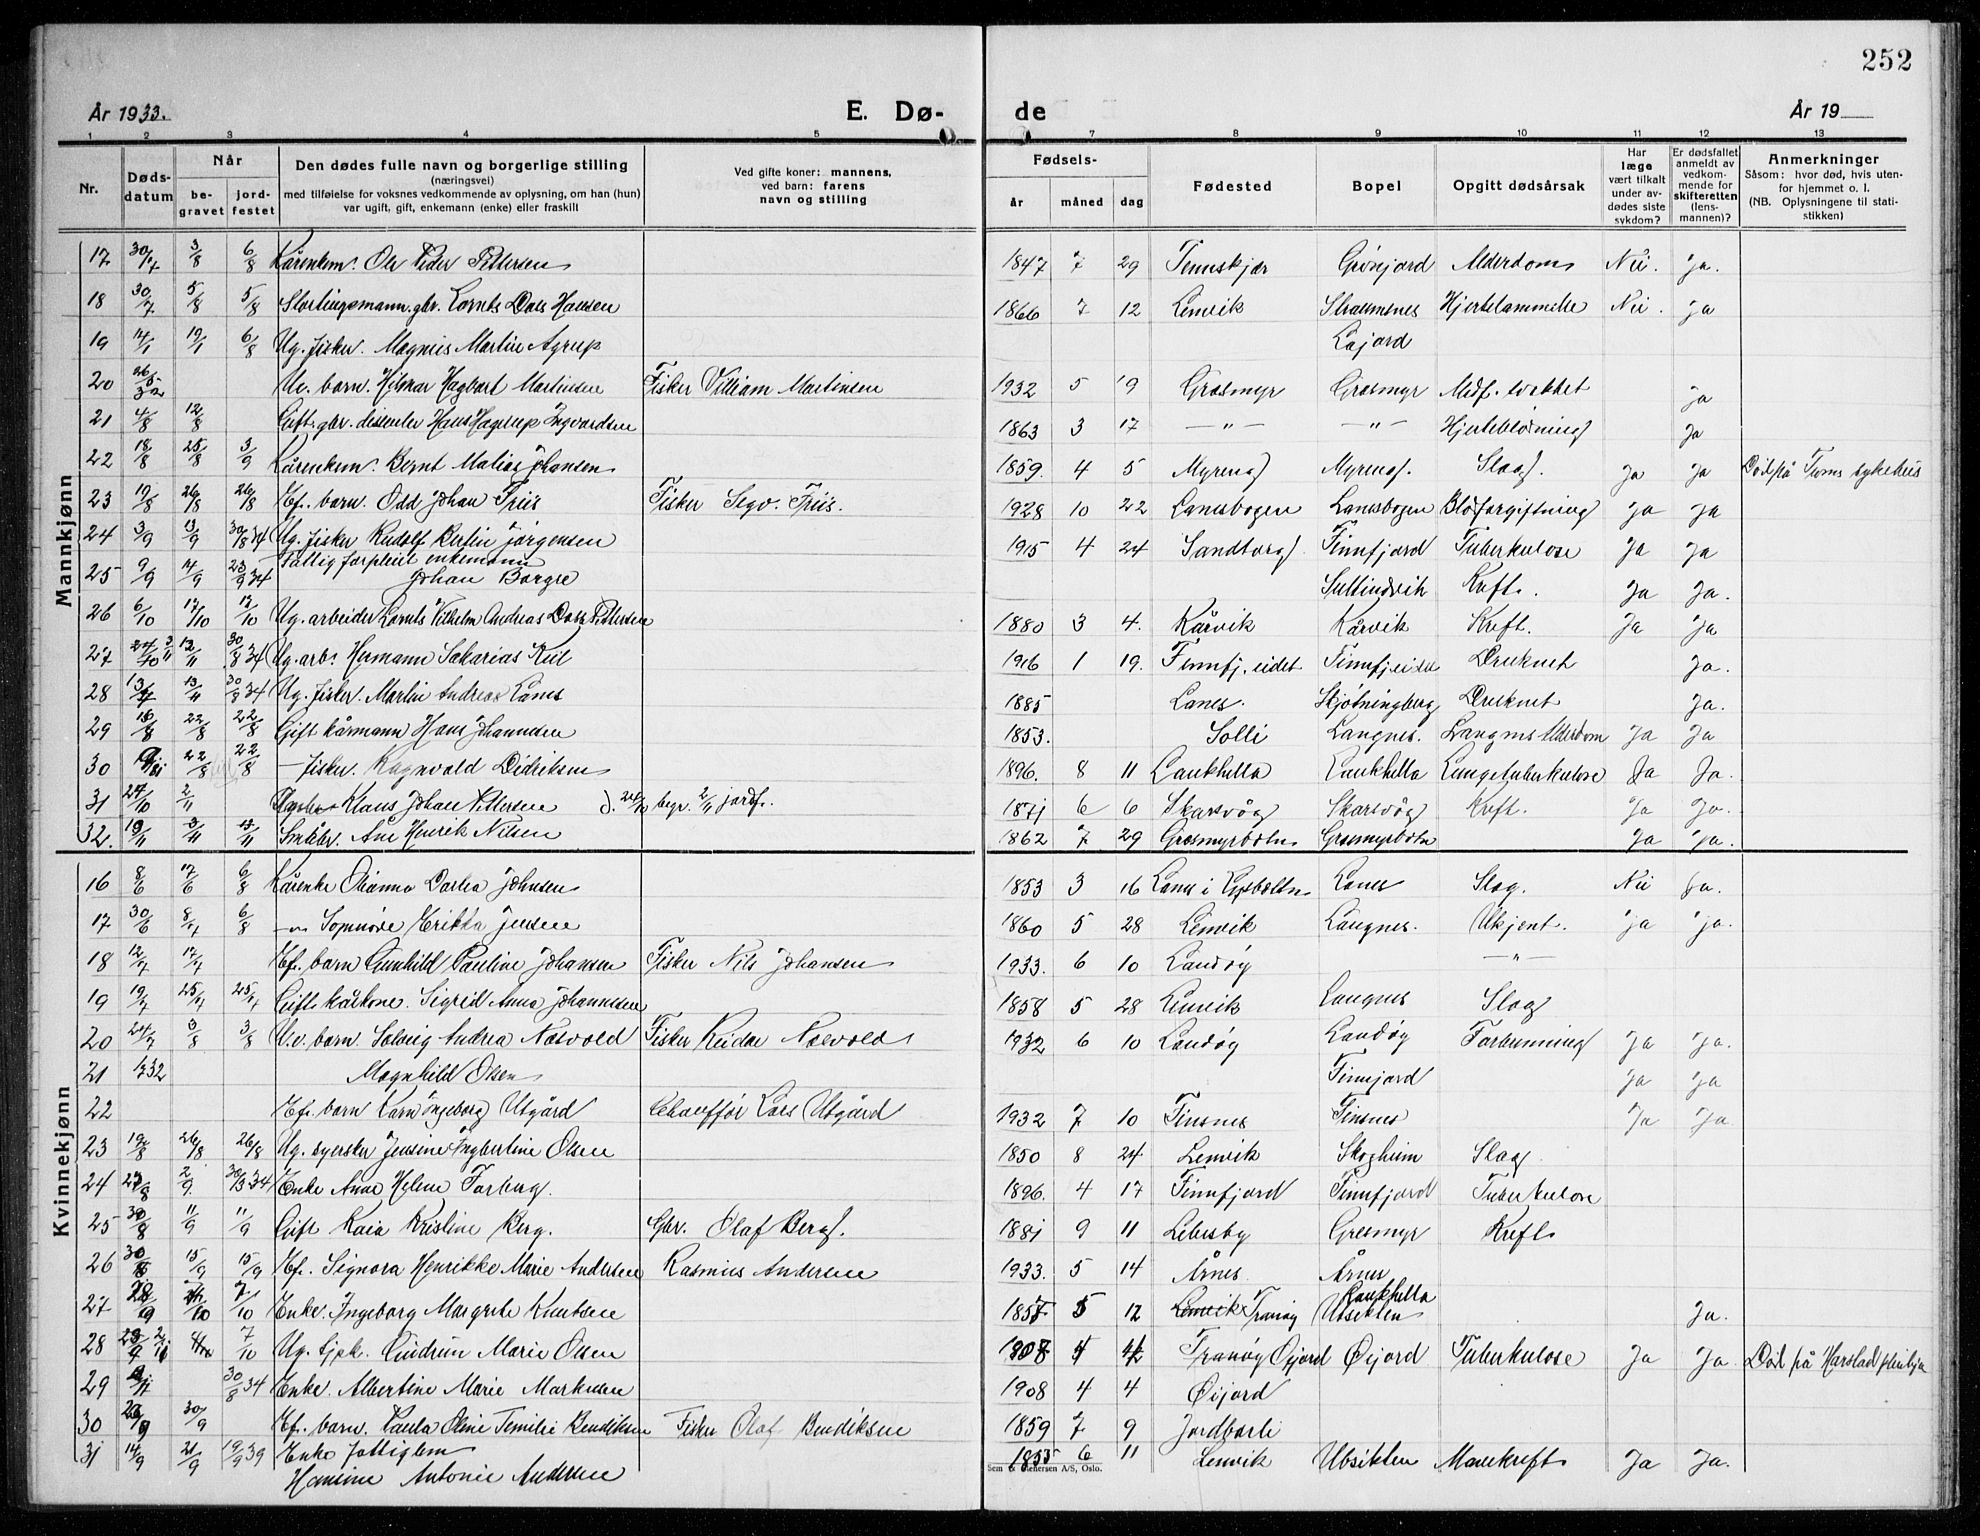 252
År 1933.
E. Dø-
de
År 19
1 2 3 4 5 7 8 9 10 11 12 13
Nr.
Døds-
datum
Når
be-
gravet
jord-
festet
Den dødes fulle navn og borgerlige stilling
(næringsvei)
med tilføielse for voksnes vedkommende av oplysning, om han (hun)
var ugift, gift, enkemann (enke) eller fraskilt
Ved gifte koner: mannens,
ved barn: farens
navn og stilling
Fødsels-
år måned dag
Fødested
Bopel
Opgitt dødsårsak
Har
læge
vært tilkalt
under av-
dødes siste
sykdom?
Er dødsfallet
anmeldt av
vedkom-
mende for
skifteretten
(lens-
mannen)?
Anmerkninger
Såsom: hvor død, hvis uten-
for hjemmet o. l.
(NB. Oplysningene til stati-
stikken)
Mannkjønn
17 30/7 3/8 6/8 Kårenkem. Ole Peder Pettersen 1847 7 29 Tennskjær Grøsfjord Alderdom Nei. Ja.
18 30/7 5/8 5/8 Stortingsmann. gbr. Lornts Hansen 1866 7 12 Lenvik Straumsnes Hjertelammelse Nei. ja
19 14/1 19/1 6/8 Ug. fisker. Magnus Martin Agrup
20 Uv. barn. Hilmar Hagbart Martinsen Fisker Villiam Martinsen 1932 5 19 Grasmyr Grasmyr Medf. svakhet ja
21 4/8 12/8 Gift. gbr. dissenter Hans Hagerup Ingvardsen 1863 3 17 —"— —"— Hjerteblødning Ja
22 18/8 25/8 3/9 Kårenkem. Bernt Matias Johansen 1859. 4 5 Myreng Myreng. Slag. Ja Ja Død på Troms sykehus
23 19/8 26/8 26/8 Ef. barn. Odd Johan Friis Fisker Sigv. Friis. 1928 10 22 Lanesbogen Lanesbogen Blodforgiftning Ja Ja
24 3/9 13/9 30/8 34 Ug. fisker Rudolf Bertin Jørgensen 1915 4 24 Sandtorg Finnfjord Tuberkulose Ja Ja
25 9/9 14/9 23/9 34 Fattigforpleiet enkemann
Johan Borgre Sultindvik Kreft. Ja Ja.
26 6/10 17/10 17/10 Ug. arbeider Lornts Vilhelm Andreas Pettersen 1880 3 4. Kårvik Kårvik Kreft. Ja Ja
27 30/8 34 Ug. arb. Hermann Sakarias Kiil 1916 1 19. Finnfj. eidet Finnfjeidet Druknet Ja.
28 13/11 30/8 34 Ug. fisker. Martin Andreas Lanes 1885 Lanes. Skjøtningberg Druknet Ja.
29 18/8 22/8 22/8 Gift kårmann Hans Johannesen 1853. Solli Langnes. Alderdom Ja Ja
30 22/8 22/8 — fisker. Ragnvald Didriksen 1896. 8 11 Laukhella Laukhella Lungetuberkulose Ja Ja.
31 24/10 2/11 Klaus Johan Pettersen d. 24/10 begr. 2/11 jordf. 1871 6 6 Skarsvåg Skarsvåg Kreft. Ja Ja.
32. 3/11 13/11 Småbr. Ane Henrik Nilsen 1862 7 29 Grasmyrbotn Grasmyrbotn Ja Ja.
Kvinnekjønn
16 8/6 17/6 6/8 Kårenke Dorthea Johnsen 1853 3 16 Lanes i Lanes Slag. Nei Ja.
17 30/6 8/7 6/8 Erikka Jensen 1860 5 28 Lenvik Langnes. Ukjent. ja ja.
18 12/7 17/7 Ef. barn Gunhild Pauline Johansen Fisker Nils Johansen 1933. 6 10 Landøy —"—
19 19/7 25/7 25/7 Gift kårkone. Sigrid Anna Johannesen 1858 5 28 Lenvik Langnes Slag
20 24/7 3/8 3/8 Uv. barn. Solveig Andrea Næsvold Fisker Reidar Næsvold 1932 6 10 Landøy Landøy Forbrenning Ja Ja.
21 1932 Magnhild Olsen Finnfjord Ja Ja
22 Ef. barn Karn Ingeborg Utgård Chauffør Lars Utgård 1932 7 10 Finsnes Finsnes Ja Ja
23 19/8 26/8 26/8 Ug. syerske Jensine Ingbertine Olsen 1850 8 24 Lenvik Skogheim Slag.
24 23/8 2/9. 34 Enke Anna Helene Forberg. 1896. 4 17 Finnfjord Finnfjord Tuberkulose
25 30/8 11/9 11/9 Gift Kaia Kristine Berg. Gbr. Olaf Berg. 1881 9 11 Lebesby Grasmyr Kreft
26 30/8 15/9 15/9 Ef. Signora Henrikke Marie Andersen Rasmus Andersen 1933. 5 14 Årnes. Årnes
27 28/9 7/10 Enke. Ingeborg Margrete Knutsen 1857 5 12 Lenvik Tranøy Laukhella Utsikten Ja.
28 7/10 Ug. tjpk. Gudrun Marie Olsen 1908 4 4 Tranøy Øijord Øijord Tuberkulose Ja Ja. Død på Harstad pleiehj.
29 30/8 34 Enke. Albertine Marie Markusen 1908 4 4 Øijord
30 30/9 Ef. barn. Paula Oline Temilie Bendiksen Fisker Olaf Bendiksen 1859 7 9 Jordbarli
31 14/9 21/9 19/9 39 Enke fattiglem
Hansine Antonie Andersen 1855 6 11 Lenvik Utsikten Mavekreft Ja Ja.
Finnfjord Lajord
Sem & Stenersen A/S, Oslo.